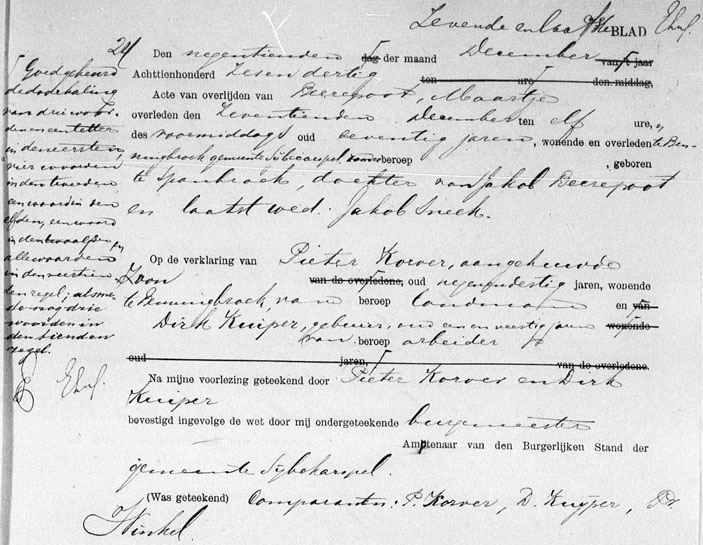 Zevende en laatste BLAD
24
Den negentienden dag der maand December van 't jaar
Achttienhonderd Zes en dertig ten ure des middag,
Acte van overlijden van Beerepoot, Maartje
overleden den Zeventienden December ten elf ure,
des voormiddags oud zeventig jaren, wonende en overleden te Ben-
ningbroek gemeente Sijbecarspel zonder beroep , geboren
te Spanbroek, dochter van Jakob Beerepoot
en laatst wed. Jakob Sneek.
Goedgekeurd
de doorhaling
van drie woor-
den en een letter
in den eersten,
vier woorden
in den tweeden
een woord in den
elfden, een woord
in den twaalfden en
alle woorden
in den veertien
den regel; alsme-
de nog drie
woorden in
den tienden
regel.
Op de verklaring van Pieter Korver, aangehuwde
Zoon van de overledene, oud negen en dertig jaren, wonende
te Benningbroek, van beroep landman en van
Dirk Kuiper, gebuur, oud een en veertig jaren wonende
van beroep arbeider
oud jaren, van de overledene.
Na mijne voorlezing geteekend door Pieter Korver en Dirk
Kuiper
bevestigd ingevolge de wet door mij ondergeteekende burgemeester
Amptenaar van den Burgerlijken Stand der
gemeente Sijbekarspel.
(Was geteekend) Comparanten: P. Korver, D. Kuijper,
Winkel.